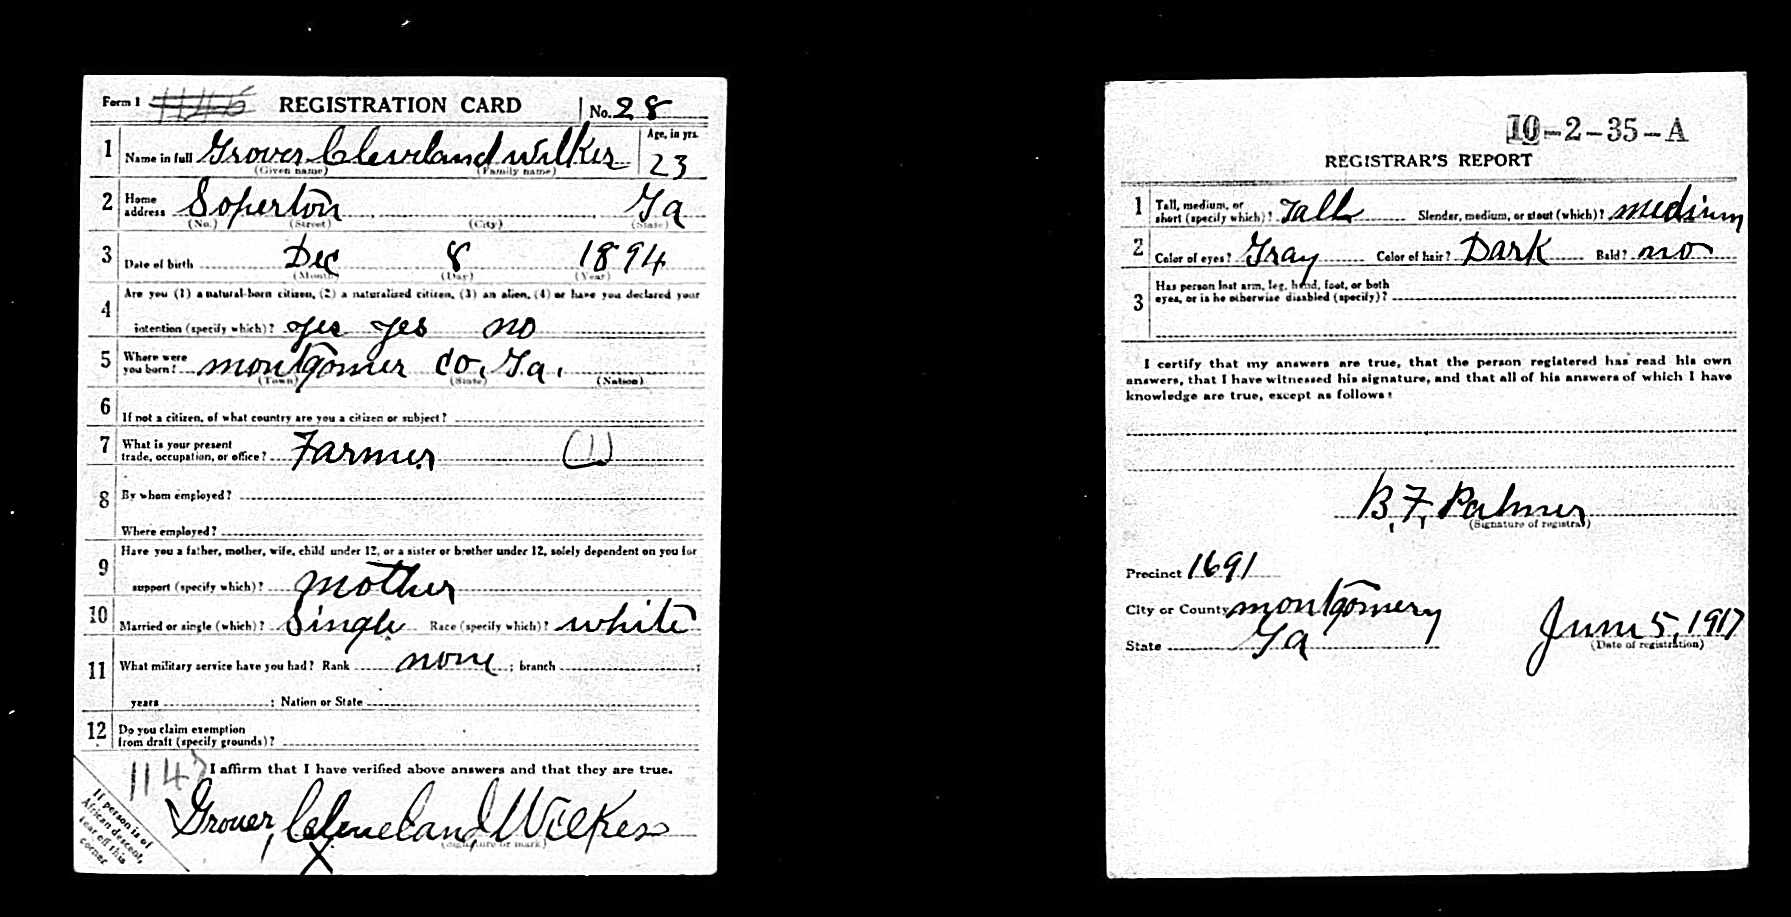 Form 1 1146 REGISTRATION CARD No. 28
1 Name in full Grover Cleveland Wilkes Age, in yrs. 23
(Given name) (Family name)
2 Home address Soperton Ga
(No.) (Street) (City) (State)
3 Date of birth Dec 8 1894
(Month) (Day) (Year)
4 Are you (1) a natural-born citizen, (2) a naturalized citizen, (3) an alien, (4) or have you declared your
intention (specify which)? yes yes no
5 Where were you born? montgomer co. Ga.
(Town) (State) (Nation)
6 If not a citizen, of what country are you a citizen or subject?
7 What is your present trade, occupation, or office? Farmer (1)
8 By whom employed?
Where employed?
9 Have you a father, mother, wife, child under 12, or a sister or brother under 12, solely dependent on you for
support (specify which)? mother
10 Married or single (which)? Single Race (specify which)? white
11 What military service have you had? Rank none ; branch ;
years ; Nation or State
12 Do you claim exemption from draft (specify grounds)?
I affirm that I have verified above answers and that they are true.
1147
Grover Cleveland Wilkes
X
(Signature or mark)
If person is of
African descent,
tear off this
corner
10-2-35-A
REGISTRAR'S REPORT
1 Tall, medium, or short (specify which)? Tall Slender, medium, or stout (which)? medium
2 Color of eyes? Gray Color of hair? Dark Bald? no
3 Has person lost arm, leg, hand, foot, or both
eyes, or is he otherwise disabled (specify)?
I certify that my answers are true, that the person registered has read his own
answers, that I have witnessed his signature, and that all of his answers of which I have
knowledge are true, except as follows:
B. F. Palmer
(Signature of registrar)
Precinct 1691
City or County montgomery
State Ga
June 5, 1917
(Date of registration)